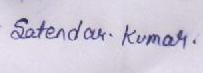 Satendar. Kumar.